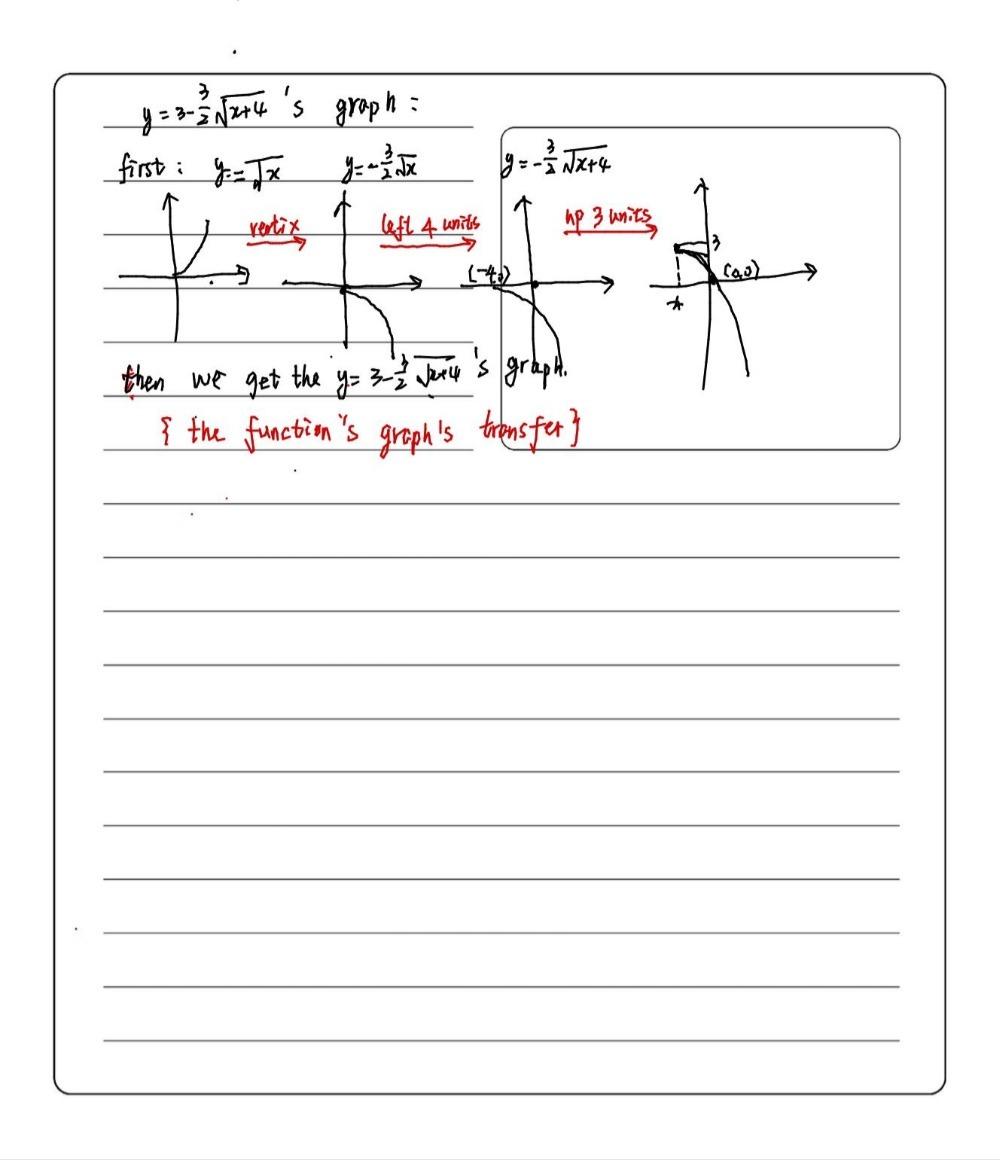 y = 3-3/2√x+4 's graph :
first : y = √x y=-3/2√x y=-3/2√x+4
vertix left 4 units up 3 units
(-4,0) 3 (0,0)
-4
then we get the y= 3-3/2√x+4 's graph.
{ the function's graph's transfer }